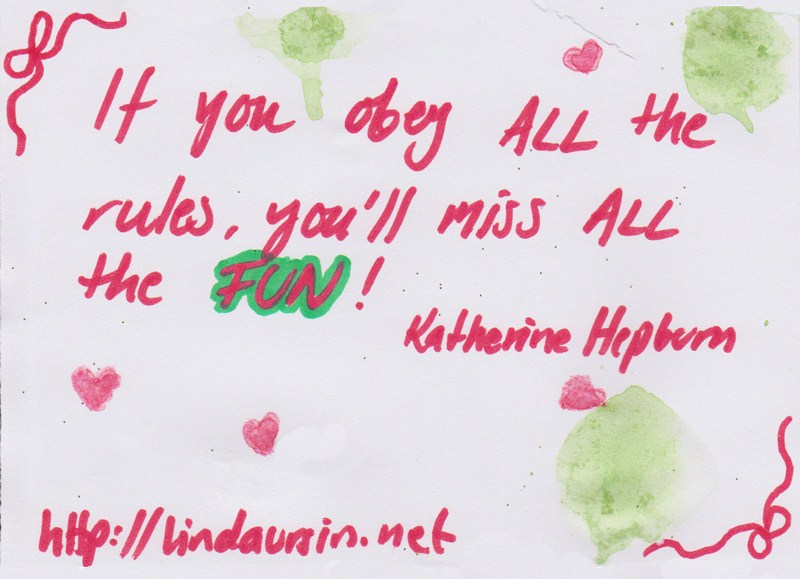 If you obey ALL the
rules, you'll miss ALL
the FUN!
Katherine Hepburn
http://lindaursin.net